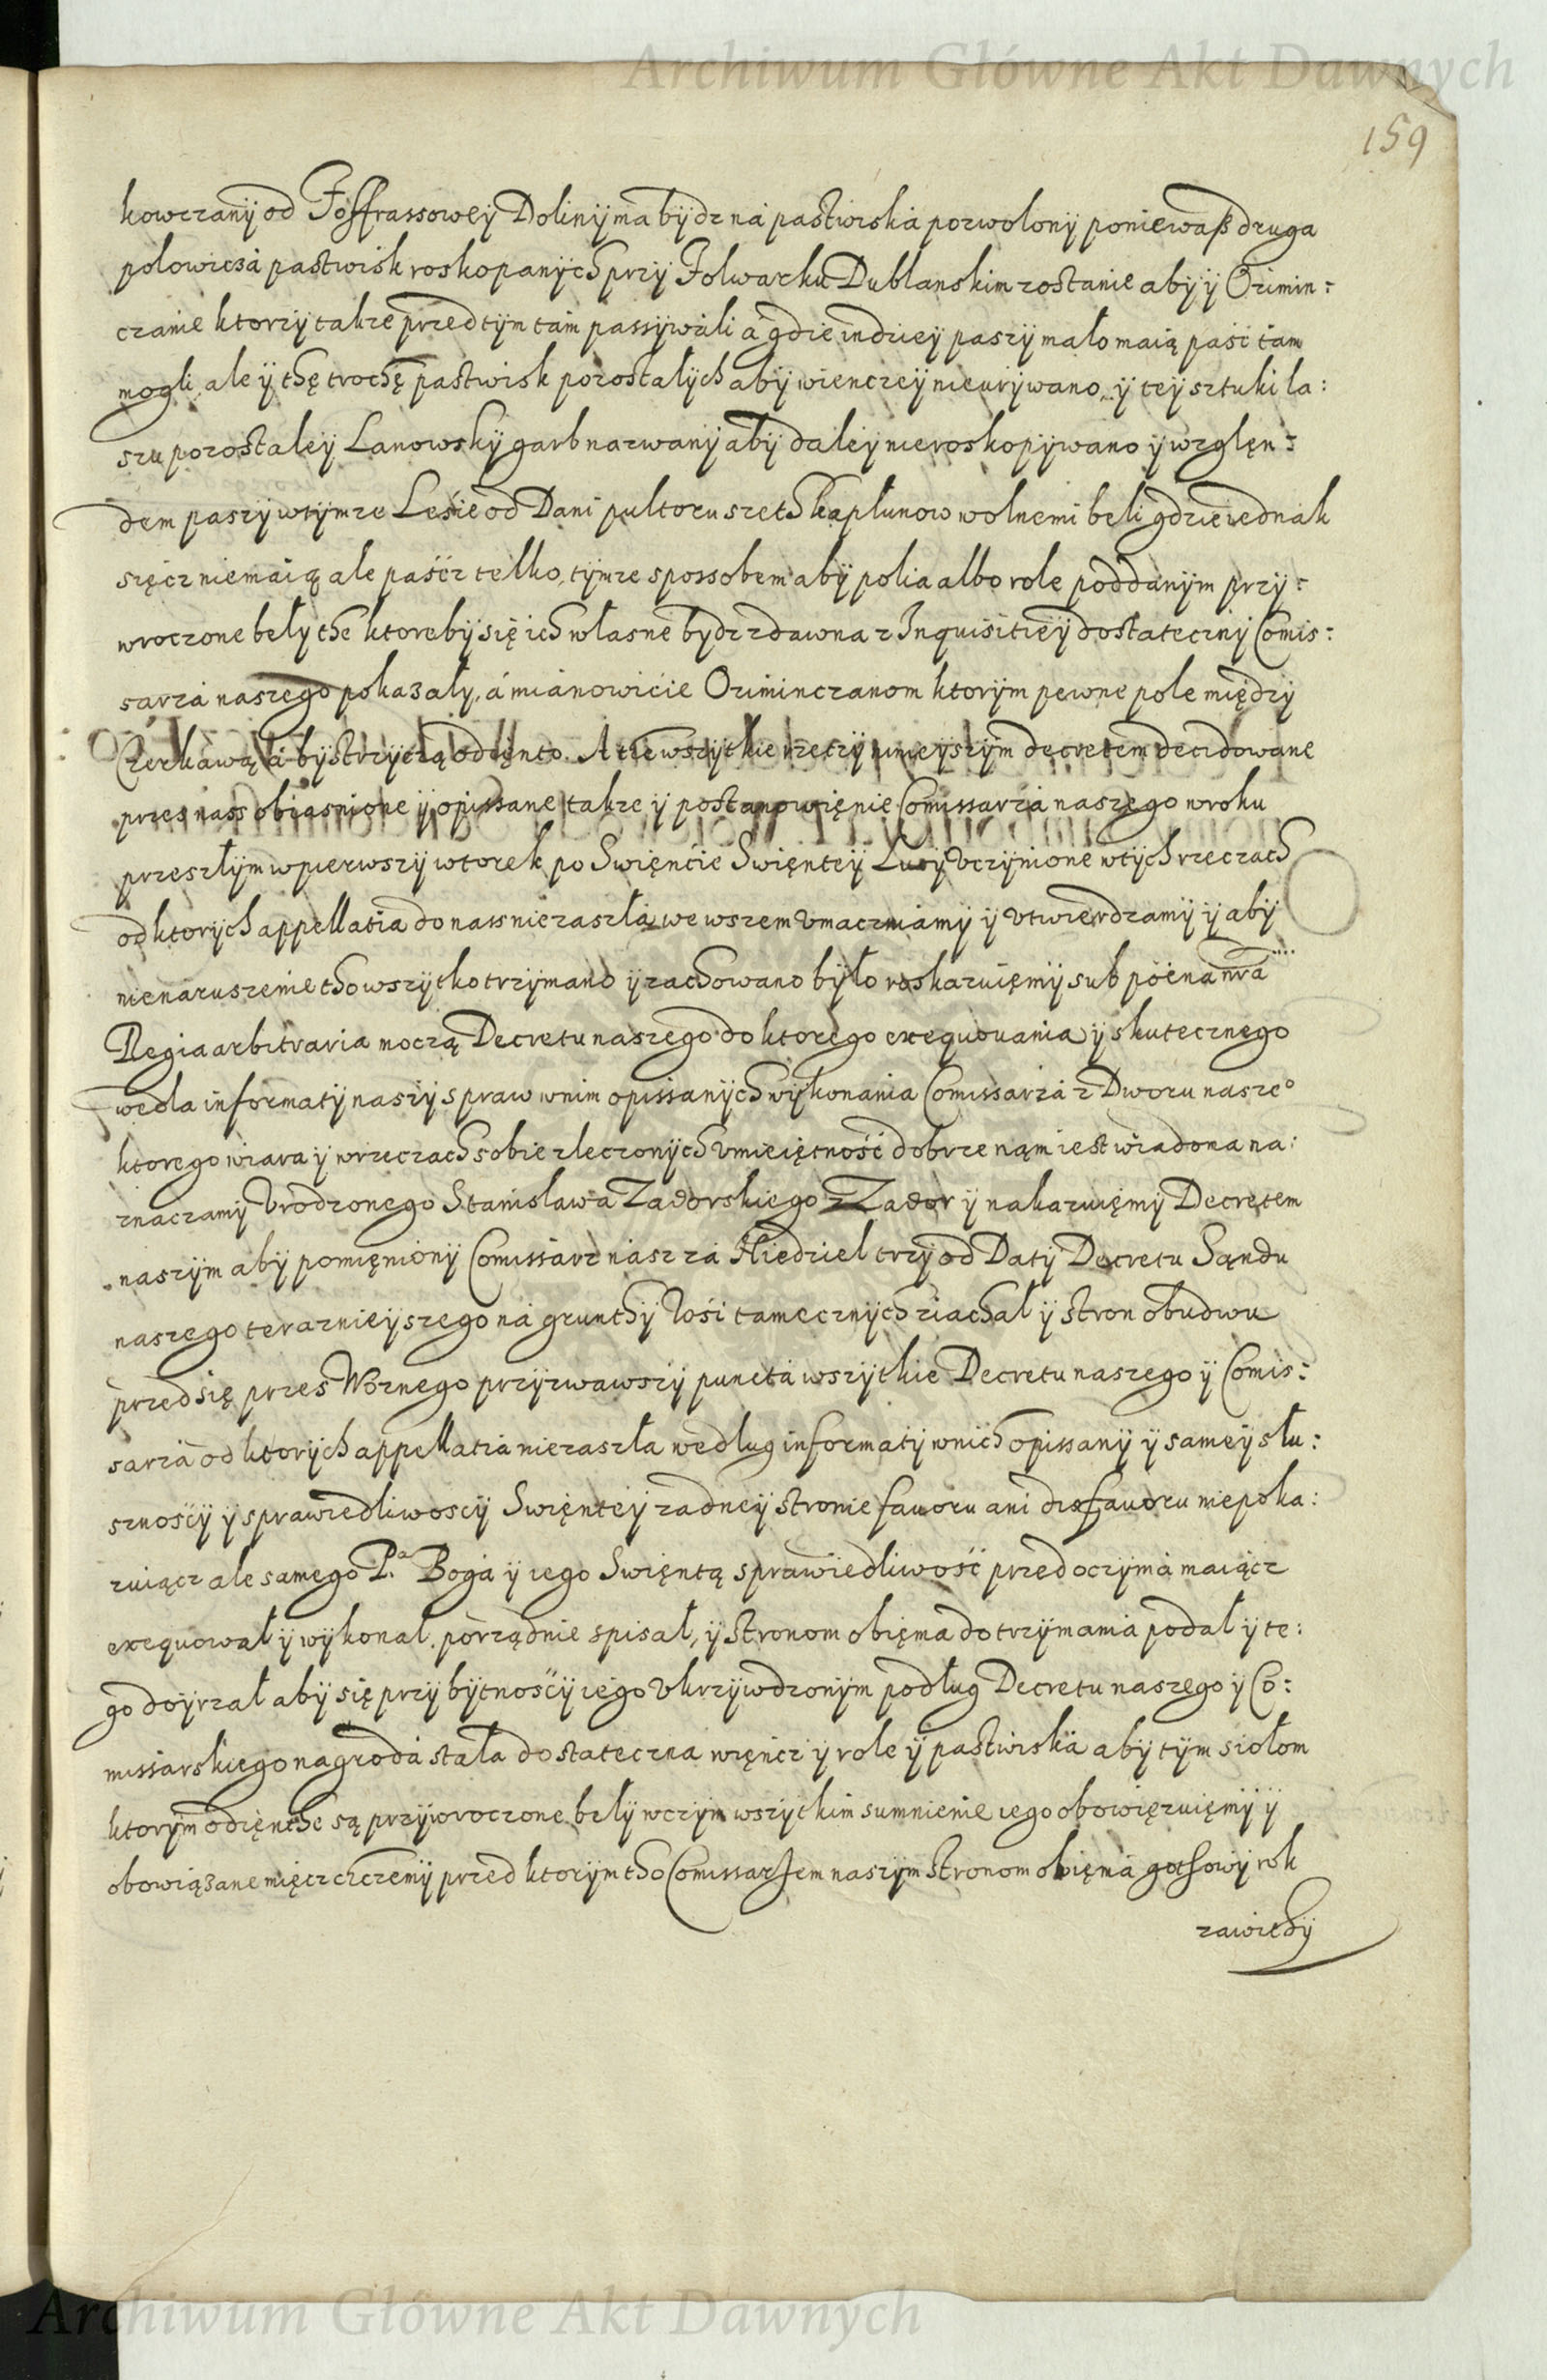 Archiwum Główne Akt Dawnych
159
kowczanÿ od Foffrassoweÿ Dolinÿ ma bÿdz ná pastwiská pozwolonÿ poniewaß druga
polowicza pastwisk roskopanÿch przÿ Folwarku Dublanskim zostanie abÿ ÿ Ozimin:
czanie ktorzÿ takze przed tÿm tám passÿwáli á gdzie indzieÿ paszÿ mało maią paść tám
mogli, ale ÿ thę trochę pastwisk pozostałÿch abÿ wienczeÿ nieurÿwano, ÿ teÿ sztuki la:
szu pozostałeÿ Lanowskÿ garb nazwanÿ abÿ daleÿ nieroskopÿwano ÿ wzglęn:
dem paszÿ wtÿmze Lesie od Dani pultoru szeth kapłunow wolnemi beli gdzie iednak
sięcz niemaią ale paścz telko, tÿmze spossobem abÿ polia albo role poddanÿm przÿ:
wroczone bełÿ the ktorebÿ się ich własne bydz zdawna z Inquisitieÿ dostatecznÿ Comis:
sarzá naszego pokazałÿ, á miánowicie Oziminczanom ktorÿm pewne pole międzÿ
Czerkawą á bÿstrzÿczą odięnto. A the wszÿtkie rzeczÿ ninieÿszÿm decretem decidowane
przes nass obiasnione ÿ opissane także ÿ postanowięnie Comissarzá naszego w roku
przeszłÿm w pierwszÿ wtorek po Swięncie Swięnteÿ Lucÿ vczÿnione wtÿch rzeczach
od ktorÿch appellatia do nass niezaszłá, we wszem vmacniámÿ ÿ vtwierdzamÿ ÿ abÿ
nienaruszenie tho wszÿtko trzÿmano ÿ zachowano bÿło roskazuięmÿ sub poena nra
Regia arbitraria moczą Decretu naszego do ktorego exequouania ÿ skutecznego
wedla informatÿ naszÿ spraw wnim opissanÿch wÿkonania Comissarzá z Dworu nasze°
ktorego wiara ÿ wrzeczach sobie zleczonÿch vmieiętność dobrze nąm iest wiadoma na:
znaczamÿ Vrodzonego Stanisława Zadorskiego z Zador ÿ nakazuięmÿ Decretem
naszÿm abÿ pomięnionÿ Comissárz nász zá Niedziel trzÿ od Datÿ Decretu Sąndu
naszego teraznieÿszego ná grunthÿ Włosi tamecznÿch ziachał ÿ stron obudwu
przed się przes Woznego przÿzwawszÿ punctá wszÿtkie Decretu naszego ÿ Comis:
sarzá od ktorÿch appellatia niezaszła według informatÿ wnich opissanÿ ÿ sameÿ słu:
sznościÿ ÿ sprawiedliwoscÿ Swięnteÿ zadneÿ stronie fauoru ani disfauoru niepoka:
zuiącz ale samego Pa. Bogá ÿ iego Swięntą sprawiedliwość przed oczÿmá maiącz
exequował ÿ wÿkonał. porządnie spisał, ÿ stronom obięma do trzÿmania podał ÿ te:
go doÿrzał abÿ się przÿ bÿtnościÿ iego vkrzÿwdzonÿm podług Decretu naszego ÿ Co:
missarskiego nagrodá stała dostateczna więncz ÿ role ÿ pastwiská abÿ tÿm siołom
ktorÿm odięnthe są przÿwroczone bełÿ wczÿm wszÿtkim sumnienie iego obowięzuięmÿ ÿ
obowiązane mięcz chczemÿ przed ktorÿm tho Comissarzem naszÿm stronom obięma gothowÿ rok
zawithÿ
Archiwum Główne Akt Dawnych